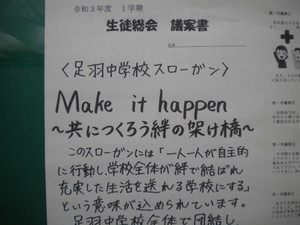 令和3年度 1学期
生徒総会 議案書
〈足羽中学校スローガン〉
Make it happen
～共につくろう絆の架け橋～
このスローガンには「一人一人が自主的
に行動し、学校全体が絆で結ばれ
充実した生活を送れる学校にする」
という意味が込められています。
足羽中学校全体で団結し